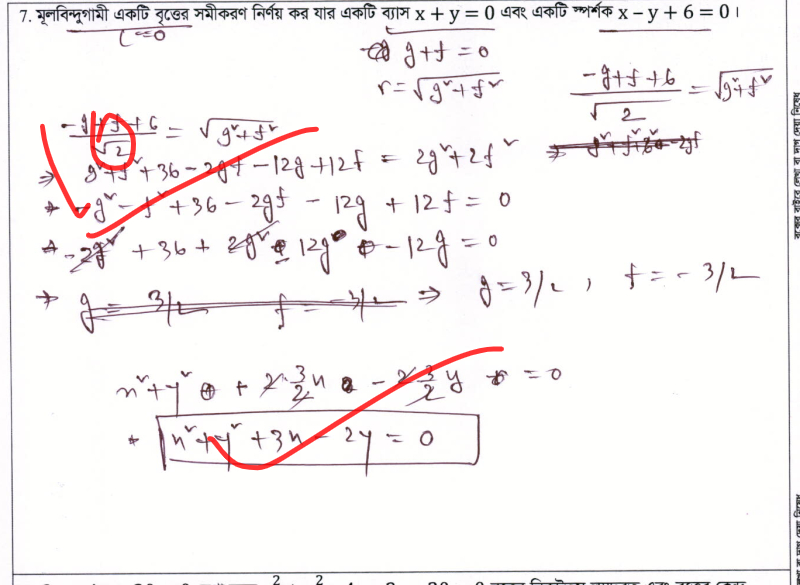 7. মূলবিন্দুগামী একটি বৃত্তের সমীকরণ নির্ণয় কর যার একটি ব্যাস x + y = 0 এবং একটি স্পর্শক x − y + 6 = 0।
c=0
g+f = 0
r = √(g²+f²)
(-g+f+6)/√2 = √(g²+f²)
(-g+f+6)/√2 = √(g²+f²)
⇒ g²+f²+36-2gf-12g+12f = 2g²+2f²
⇒ -g²-f²+36-2gf-12g+12f = 0
⇒ -2g²+36+2g²-12g-12g=0
⇒ g = 3/2 f = -3/2 ⇒ g=3/2, f=-3/2
x²+y²+2·3/2x - 2·3/2y = 0
⇒ x²+y²+3x-2y = 0